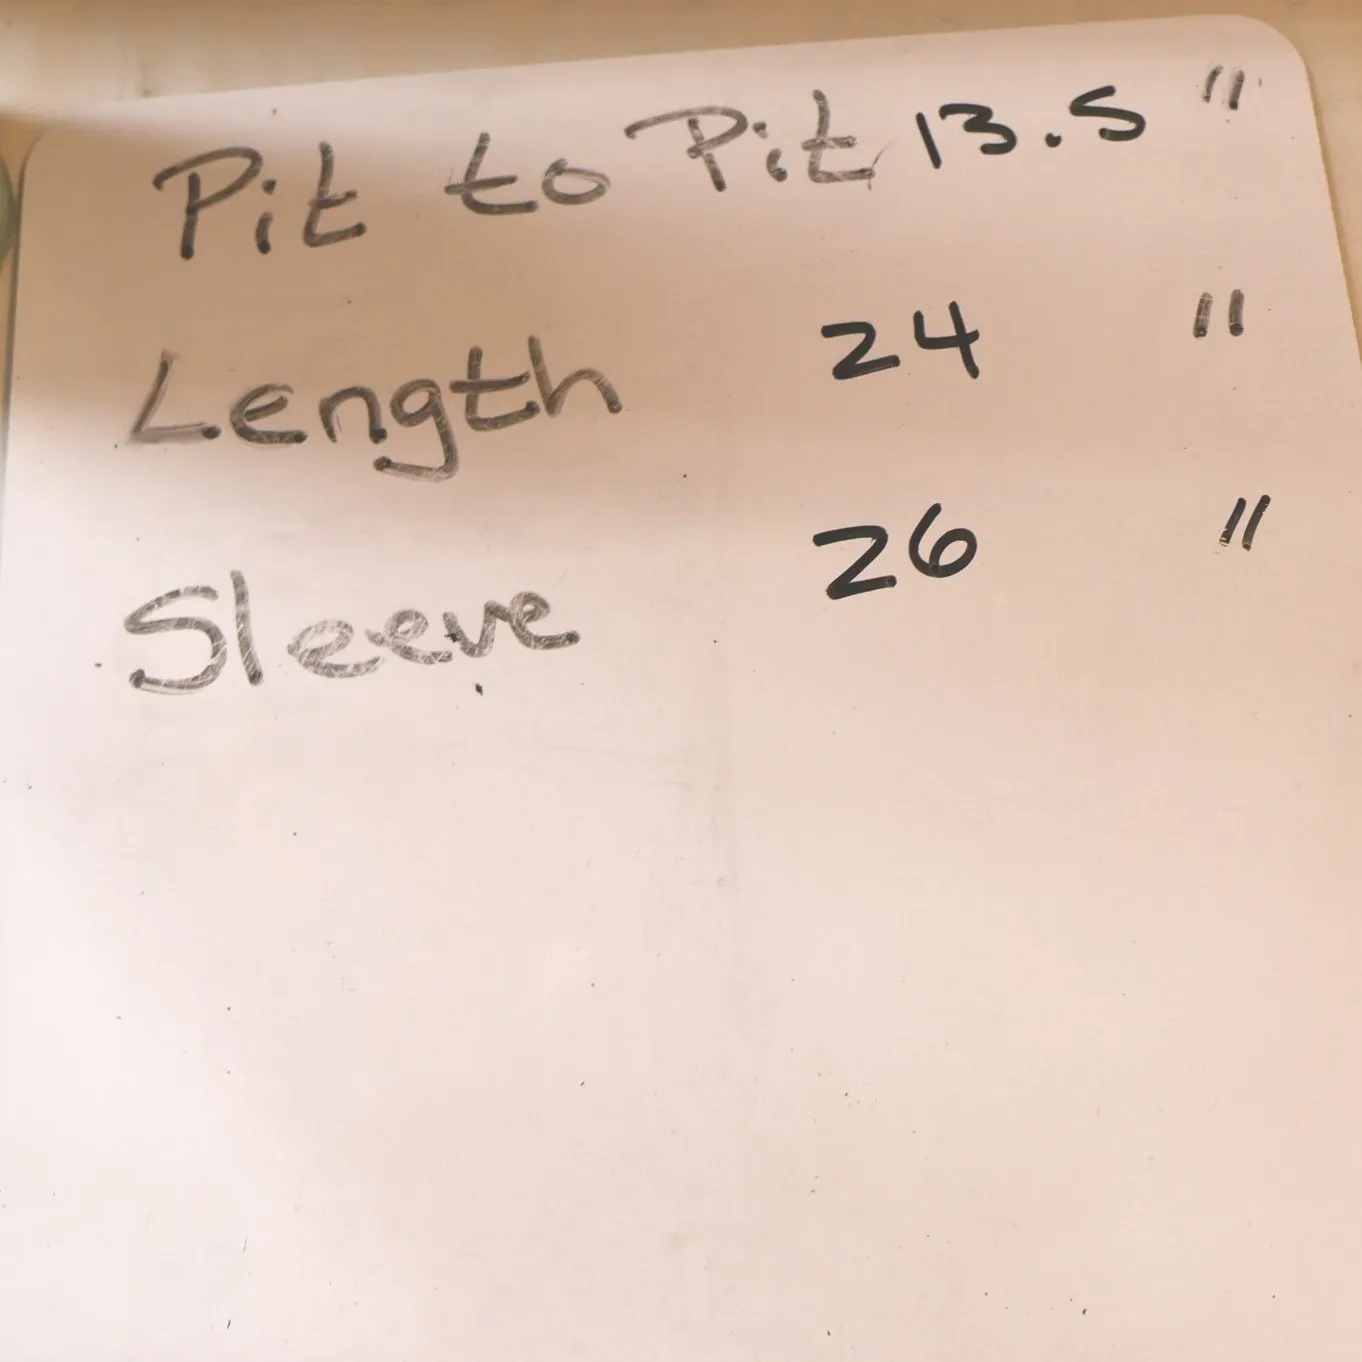 Pit to Pit 13.5 "
Length 24 "
Sleeve 26 "